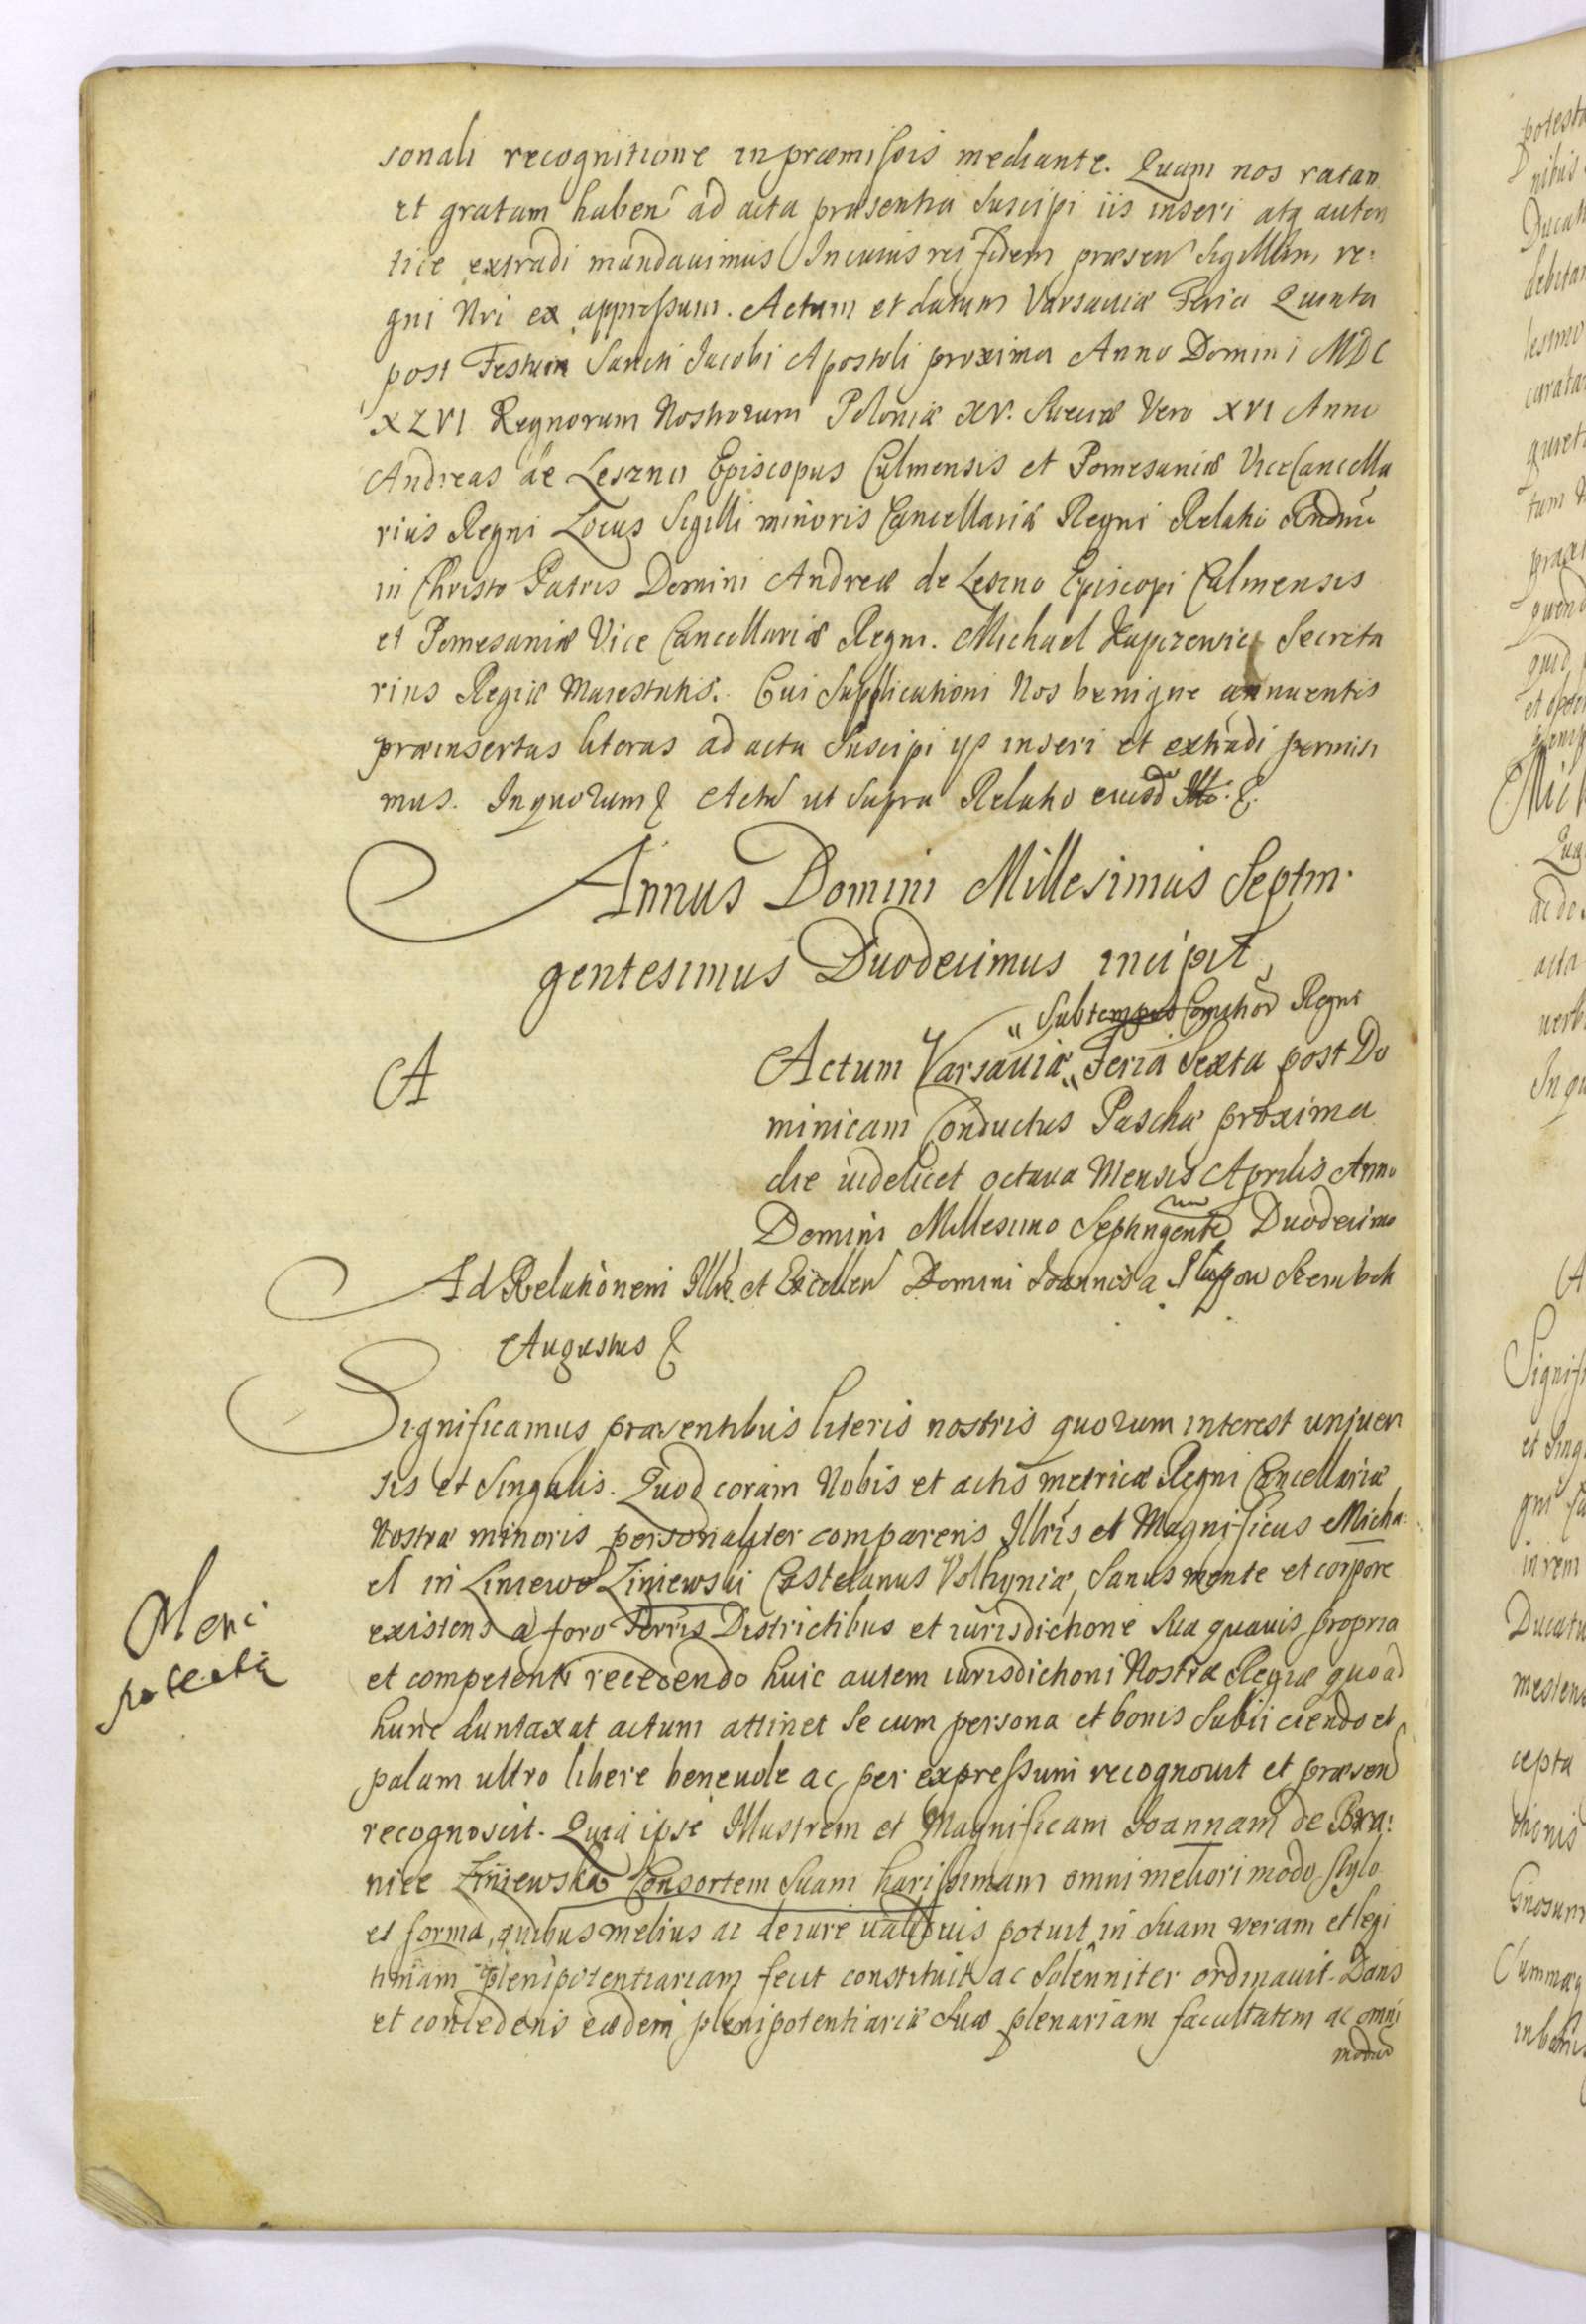 sonali recognitione in præmissis mediante. Quam nos ratan
et gratam haben ad acta præsentia suscipi iis inseri atq auten
tice extradi mandauimus In cuius rei fidem præsen Sigillum re-
gni Nri ex appressum. Actum et datum Varsauiæ Feria Quinta
post Festum Sancti Jacobi Apostoli proxima Anno Domini MDC
XLVI Regnorum Nostrorum Poloniæ XV. Sueciæ Vero XVI Anno
Andreas de Leszno Episcopus Culmensis et Pomesaniæ ViceCancella
rius Regni Locus Sigilli minoris Cancellariæ Regni Relatio Rndmi
in Christo Patris Domini Andreæ de Leszno Episcopi Culmensis
et Pomesaniæ Vice Cancellariæ Regni. Michael Secreta
rius Regiæ Maiestatis. Cui Supplicationi Nos benigne annuentis
præinsertas literas ad acta suscipi ys inseri et extradi permisi
mus. In quorum & Actu ut supra Relatio eiusd &.
Annus Domini Millesimus Septin-
gentesimus Duodecimus incipit
A
Sub tempus Comitior Regni
Actum Varsauiæ Feria Sexta post Do
minicam Conductus Paschæ proxima
die uidelicet octaua Mensis Aprilis Anno
Domini Millesimo Septingentesimo Duodecimo
Ad Relationem Illris et Excellen Domini Joannis a Słupow Szembek
Augustus &
Significamus præsentibus literis nostris quorum interest uniuer
sis et singulis. Quod coram Nobis et actis metricæ Regni Cancellariæ
Nostræ minoris personaliter comparens Illris et Magnificus Micha-
el in Liniewo Liniewski Castelanus Volhyniæ, Sanus mente et corpore
existens a foro Terris Districtibus et iurisdictione sua quauis propria
et competenti recedendo huic autem iurisdictioni Nostræ Regiæ quoad
hunc duntaxat actum attinet se cum persona et bonis subiiciendo et
palam ultro libere beneuole ac per expressum recognouit et præsen
recognoscit. Quia ipse Illustrem et Magnificam Joannam de Bra-
nice Liniewska Consortem Suam harissimam omni meliori modo stylo
et forma, quibus melius ac de iure ualidius potuit in suam veram et legi
timam plenipotentiariam fecit constituit ac solenniter ordinauit. Dans
et concedens eædem plenipotentiariæ suæ plenariam facultatem ac omni
modud
Pleni
potentia